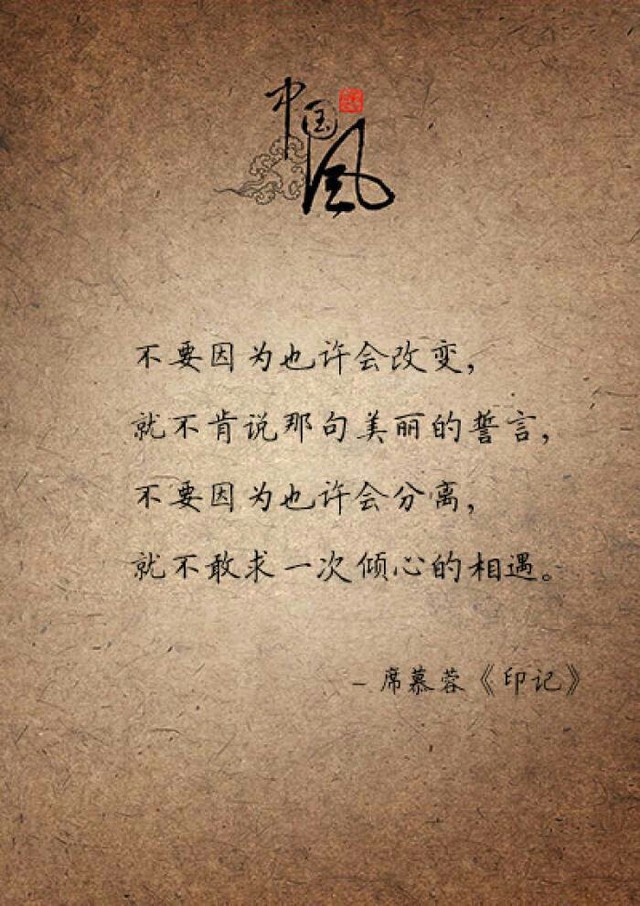 中国风
不要因为也许会改变，
就不肯说那句美丽的誓言，
不要因为也许会分离，
就不敢求一次倾心的相遇。
– 席慕蓉《印记》